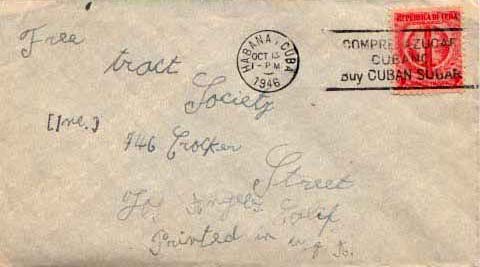 Free
tract
Society
[Inc.]
746 Crocker
Street
Los Angeles Calif
Printed in U.S.A.
HABANA, CUBA
OCT 13
- PM
1946
REPUBLICA DE CUBA
COMPRE AZUCAR
CUBANO
Buy CUBAN SUGAR